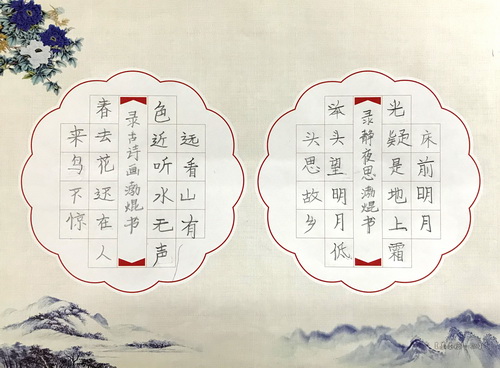 床前明月
光疑是地上霜
录静夜思渤焜书
举头望明月低
头思故乡
远看山有
色近听水无声
录古诗画渤焜书
春去花还在人
来鸟不惊